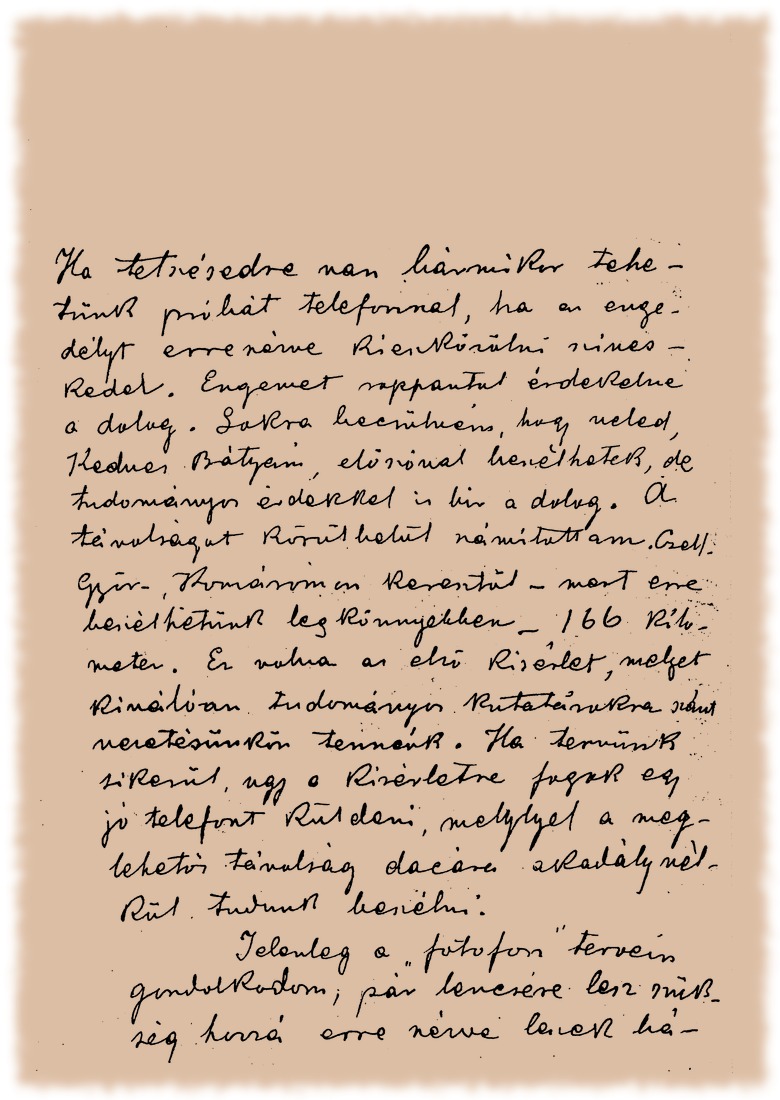 Ha tetszésedre van bármikor tehe-
tünk próbát telefonnal, ha az enge-
délyt erre nézve kieszközölni szives-
kedel. Engemet roppantul érdekelne
a dolog. Sokra becsülném, hogy veled,
Kedves Bátyám, élőszóval beszélhetek, de
tudományos érdekkel is bir a dolog. A
távolságot körülbelül számitottam. Czell.
Győr-, Komáromon keresztül – mert erre
beszélhetünk legkönnyebben – 166 kilo-
meter. Ez volna az első kisérlet, melyet
kiválóan tudományos kutatásokra szánt
vezetésünkön tennénk. Ha tervünk
sikerül, ugy a kisérletre fogok egy
jó telefont küldeni, melylyel a meg-
lehetős távolság daczára akadály nél-
kül tudunk beszélni.
Jelenleg a „fotofon" tervein
gondolkodom; pár lencsére lesz szük-
ség hozzá erre nézve leszek bá-